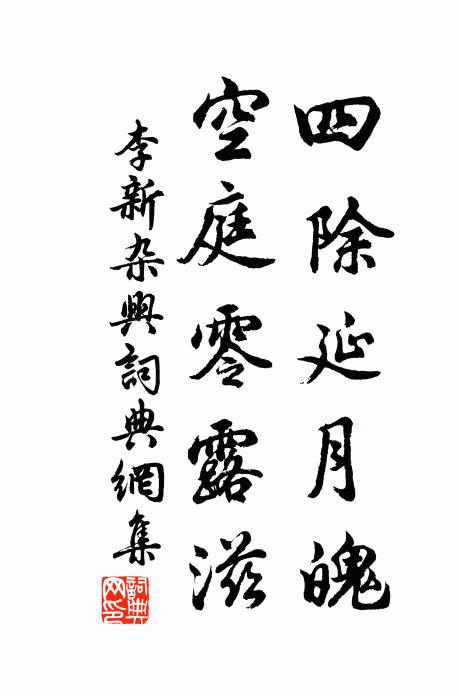 四除延月魄
空庭零露滋
李新杂興詞典網集
詞典網印